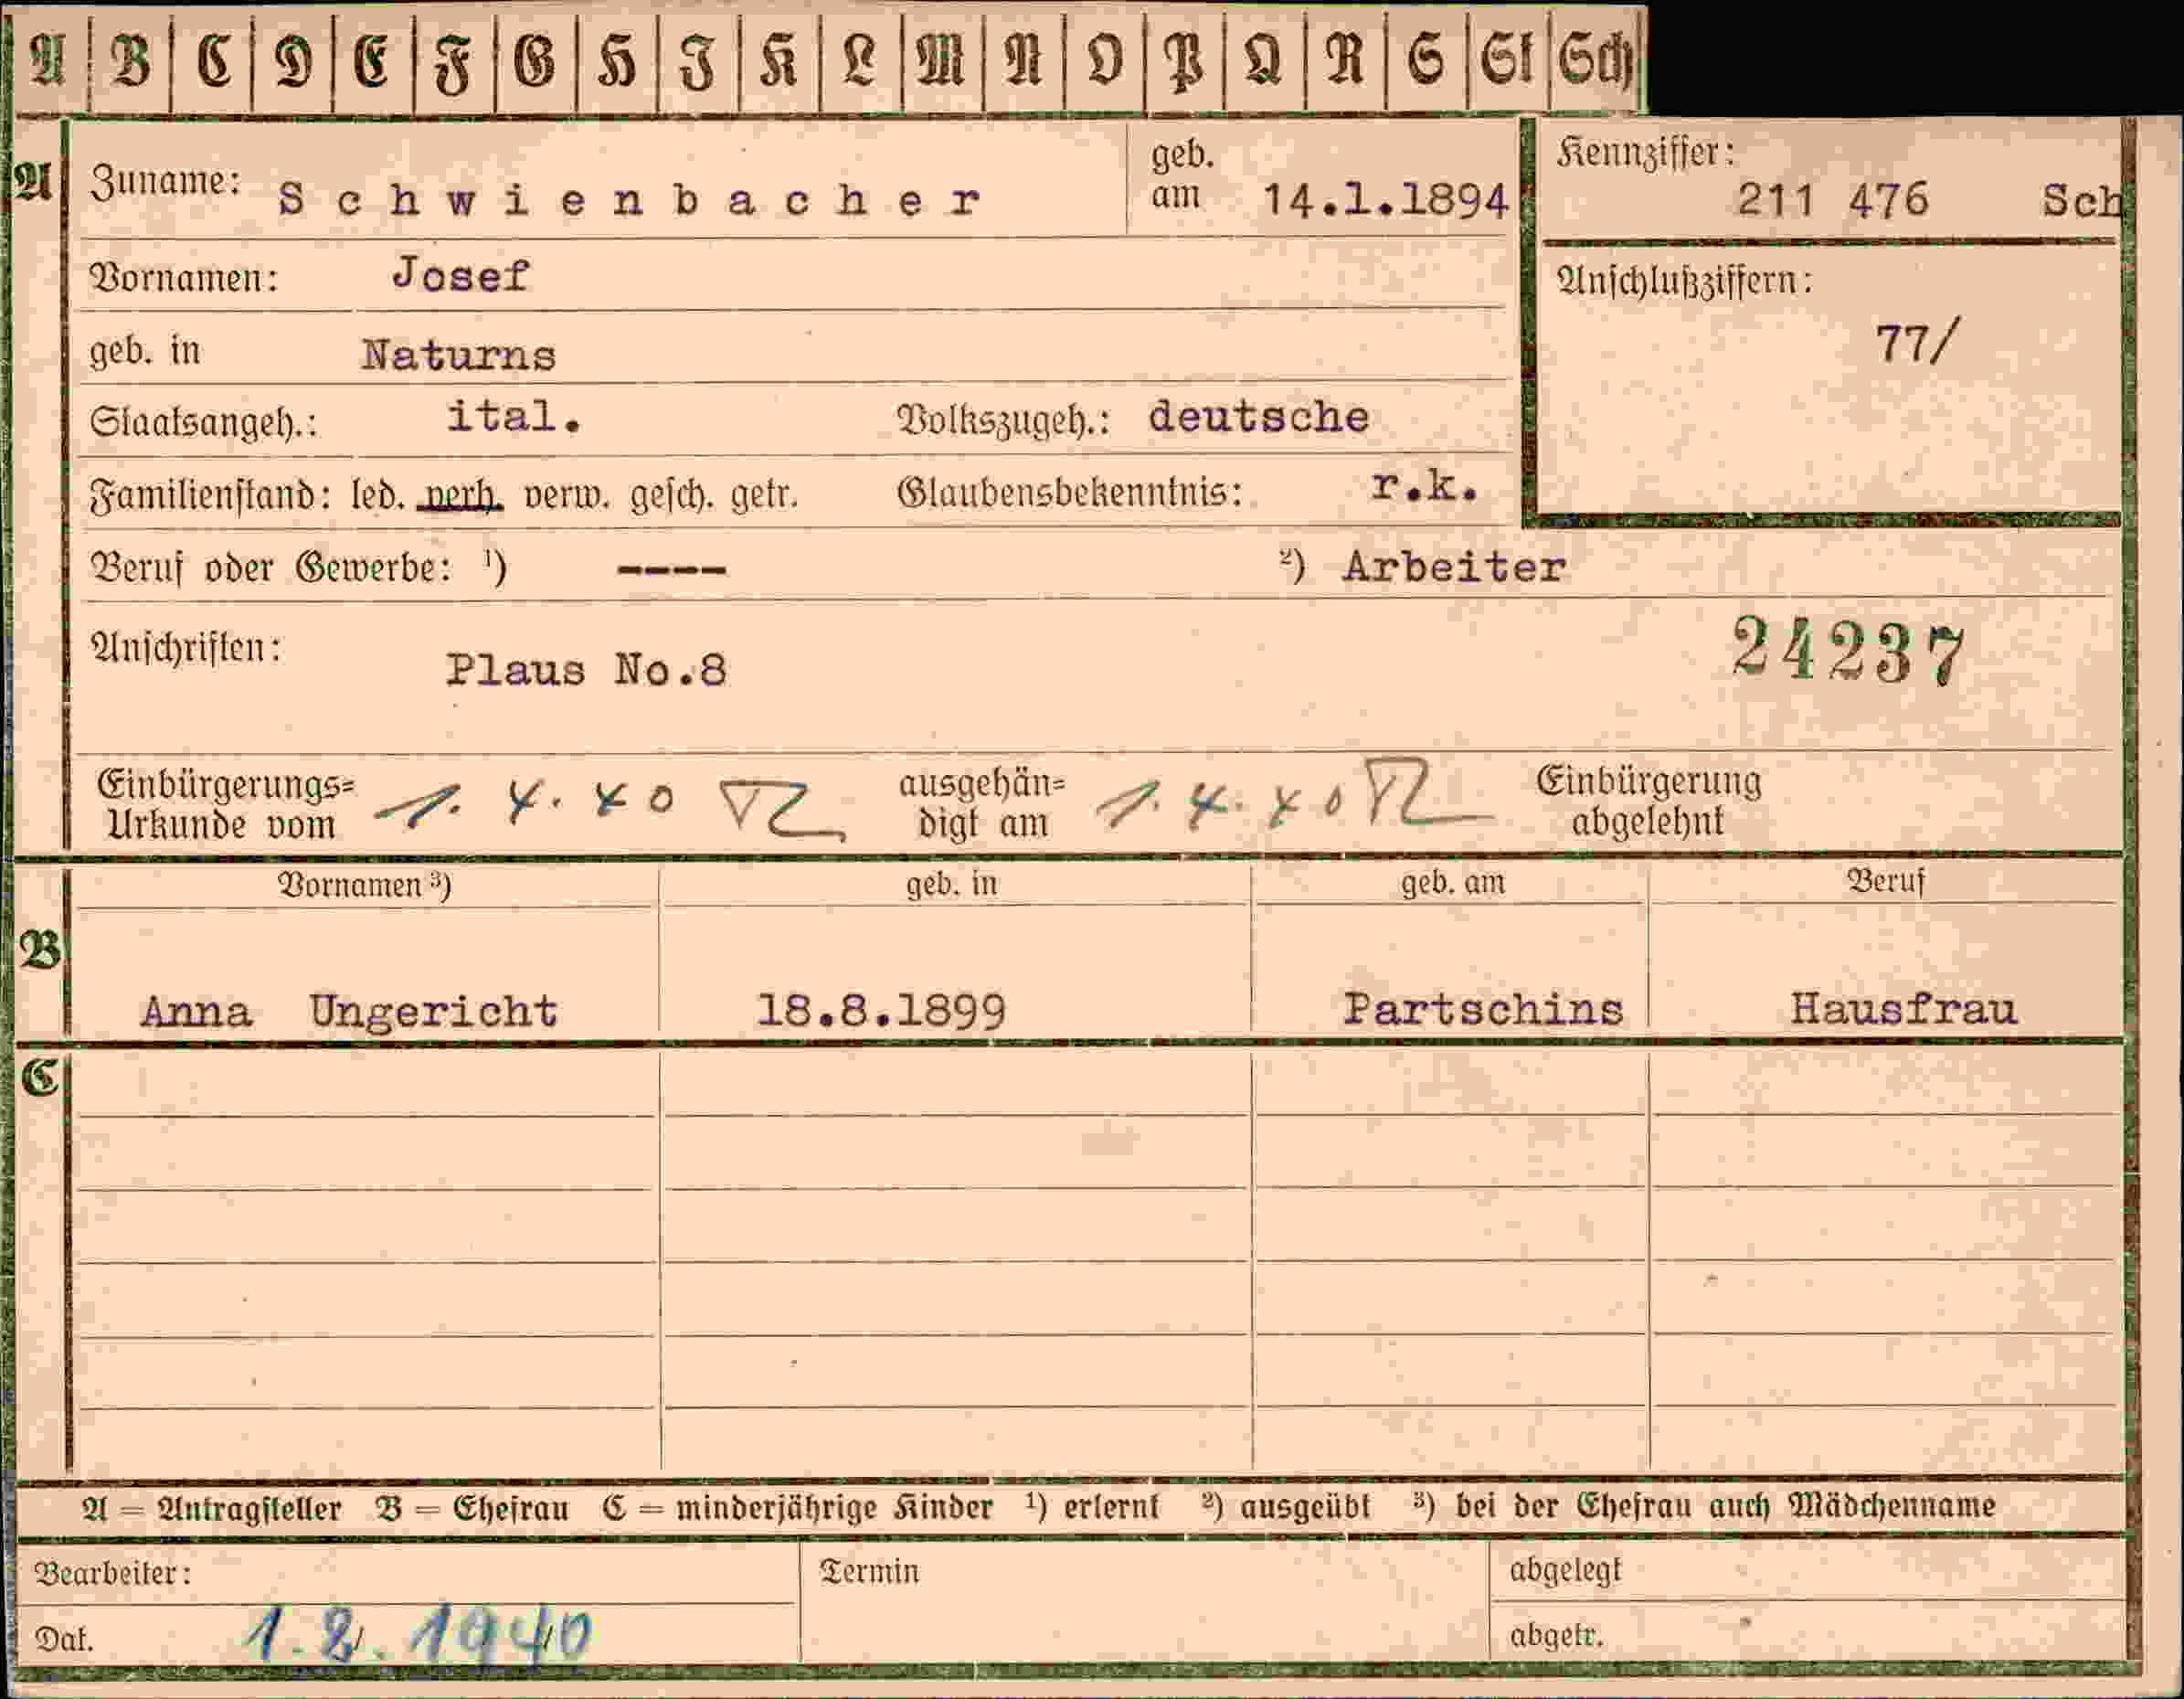 A B C D E F G H I K L M N O P Q R S St Sch
A Zuname: Schwienbacher geb. am 14.1.1894 Kennziffer: 211 476 Sch
Vornamen: Josef Anschlußziffern:
geb. in Naturns 77/
Staatsangeh.: ital. Volkszugeh.: deutsche
Familienstand: led. verh. verw. gesch. getr. Glaubensbekenntnis: r.k.
Beruf oder Gewerbe: ¹) ---- ²) Arbeiter
Anschriften: Plaus No.8 24237
Einbürgerungs= Urkunde vom 1. 4. 40 ausgehän= digt am 1. 4. 40 Einbürgerung abgelehnt
Vornamen ³) geb. in geb. am Beruf
B
Anna Ungericht 18.8.1899 Partschins Hausfrau
C
A = Antragsteller B = Ehefrau C = minderjährige Kinder ¹) erlernt ²) ausgeübt ³) bei der Ehefrau auch Mädchenname
Bearbeiter: Termin abgelegt
Dat. 1.2.1940 abgetr.